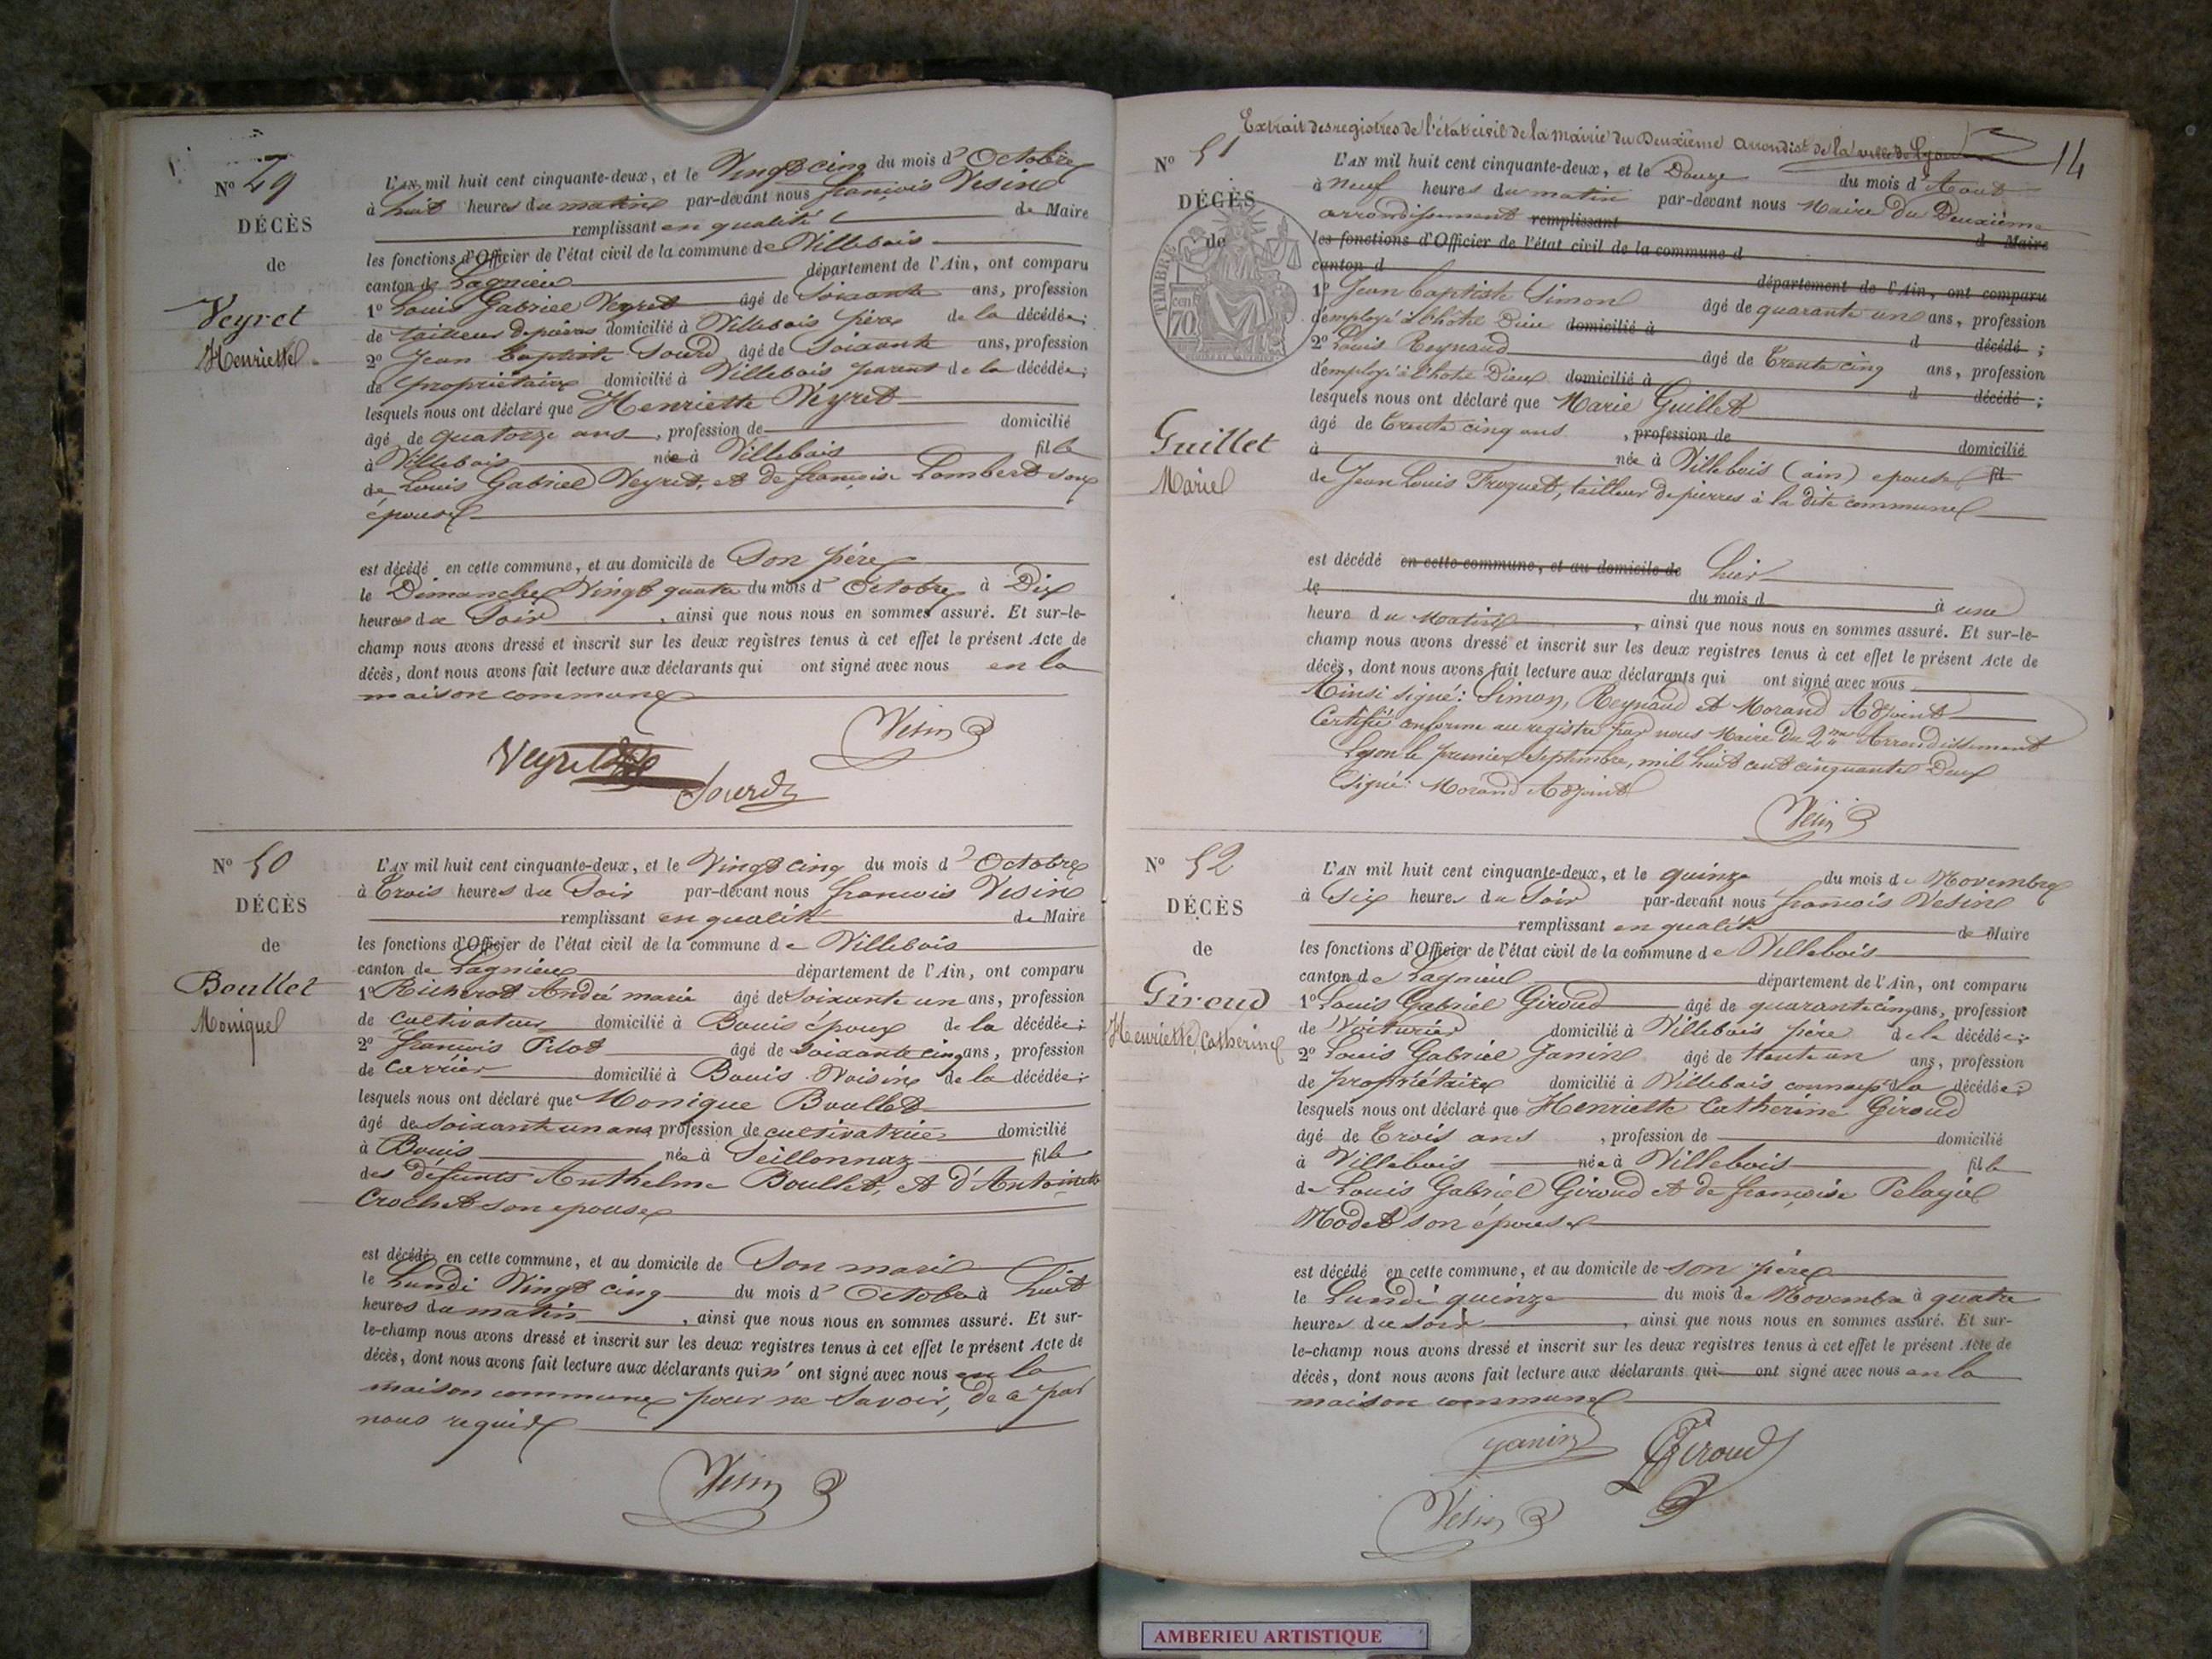 Nº 49
DÉCÈS
de
Veyret
Henriette
L'AN mil huit cent cinquante-deux, et le Vingt cinq du mois d'Octobre
à huit heures du matin par-devant nous françois Vesin
remplissant en qualité de Maire
les fonctions d'Officier de l'état civil de la commune de Villebois
canton de Lagnieu département de l'Ain, ont comparu
1º Louis Gabriel Veyret âgé de Soixante ans, profession
de tailleur de pierres domicilié à Villebois père de la décédée;
2º Jean Baptiste Sourd âgé de Soixante ans, profession
de propriétaire domicilié à Villebois parent de la décédée;
lesquels nous ont déclaré que Henriette Veyret
âgé de quatorze ans, profession de domicilié
à Villebois née à Villebois fille
de Louis Gabriel Veyret, et de françoise Lombert son
épouse
est décédé en cette commune, et au domicile de Son père
le Dimanche Vingt quatre du mois d'Octobre à Dix
heures du Soir, ainsi que nous nous en sommes assuré. Et sur-le-
champ nous avons dressé et inscrit sur les deux registres tenus à cet effet le présent Acte de
décès, dont nous avons fait lecture aux déclarants qui ont signé avec nous en la
maison commune
Vesin
Veyret
Sourd
Nº 50
DÉCÈS
de
Boullet
Monique
L'AN mil huit cent cinquante-deux, et le Vingt cinq du mois d'Octobre
à Trois heures du Soir par-devant nous françois Vesin
remplissant en qualité de Maire
les fonctions d'Officier de l'état civil de la commune de Villebois
canton de Lagnieu département de l'Ain, ont comparu
1º Richerot André marie âgé de soixante un ans, profession
de Cultivateur domicilié à Bouis époux de la décédée;
2º françois Pilot âgé de soixante cinq ans, profession
de Carrier domicilié à Bouis Voisin de la décédée;
lesquels nous ont déclaré que Monique Boullet
âgé de soixante un ans profession de cultivatrice domicilié
à Bouis née à Seillonnaz fille
des défunts Anthelme Boullet, et d'Antoinette
Crochet son epouse
est décédé en cette commune, et au domicile de Son mari
le Lundi Vingt cinq du mois d'Octobre à huit
heures du matin, ainsi que nous nous en sommes assuré. Et sur-
le-champ nous avons dressé et inscrit sur les deux registres tenus à cet effet le présent Acte de
décès, dont nous avons fait lecture aux déclarants qui n'ont signé avec nous en la
maison commune pour ne Savoir, de ce par
nous requis
Vesin
Extrait des registres de l'état civil de la mairie du Deuxième arrondist de la ville de Lyon
14
Nº 51
DÉCÈS
de
TIMBRE
70 cen
Guillet
Marie
L'AN mil huit cent cinquante-deux, et le Douze du mois d'Aout
à neuf heures du matin par-devant nous Maire du Deuxième
arrondissement remplissant
les fonctions d'Officier de l'état civil de la commune d d Maire
canton d département de l'Ain, ont comparu
1º Jean baptiste Simon âgé de quarante un ans, profession
d'employé à l'hotel Dieu domicilié à d décédé;
2º Louis Reynaud âgé de Trente cinq ans, profession
d'employé à l'hotel Dieu domicilié à d décédé;
lesquels nous ont déclaré que Marie Guillet
âgé de Trente cinq ans, profession de domicilié
à née à Villebois (ain) epouse fil
de Jean Louis Troquet, tailleur de pierres à la dite commune
est décédé en cette commune, et au domicile de hier
le du mois d à une
heure du Matin, ainsi que nous nous en sommes assuré. Et sur-le-
champ nous avons dressé et inscrit sur les deux registres tenus à cet effet le présent Acte de
décès, dont nous avons fait lecture aux déclarants qui ont signé avec nous
Ainsi signé: Simon, Reynaud et Morand Adjoint
Certifié conforme au registre par nous Maire du 2me Arrondissement
Lyon le premier Septembre, mil huit cent cinquante Deux
Signé: Morand Adjoint
Vesin
Nº 52
DÉCÈS
de
Giroud
Henriette Catherine
L'AN mil huit cent cinquante-deux, et le quinze du mois de Novembre
à Six heures du Soir par-devant nous françois Vesin
remplissant en qualité de Maire
les fonctions d'Officier de l'état civil de la commune de Villebois
canton de Lagnieu département de l'Ain, ont comparu
1º Louis Gabriel Giroud âgé de quarante cinq ans, profession
de Voiturier domicilié à Villebois père de la décédée;
2º Louis Gabriel Janin âgé de trente un ans, profession
de propriétaire domicilié à Villebois la décédée;
lesquels nous ont déclaré que Henriette Catherine Giroud
âgé de Trois ans, profession de domicilié
à Villebois née à Villebois fille
de Louis Gabriel Giroud et de françoise Pelagie
Modet son épouse
est décédé en cette commune, et au domicile de son père
le Lundi quinze du mois de Novembre à quatre
heures du soir, ainsi que nous nous en sommes assuré. Et sur-
le-champ nous avons dressé et inscrit sur les deux registres tenus à cet effet le présent Acte de
décès, dont nous avons fait lecture aux déclarants qui ont signé avec nous en la
maison commune
Janin
Giroud
Vesin
AMBERIEU ARTISTIQUE